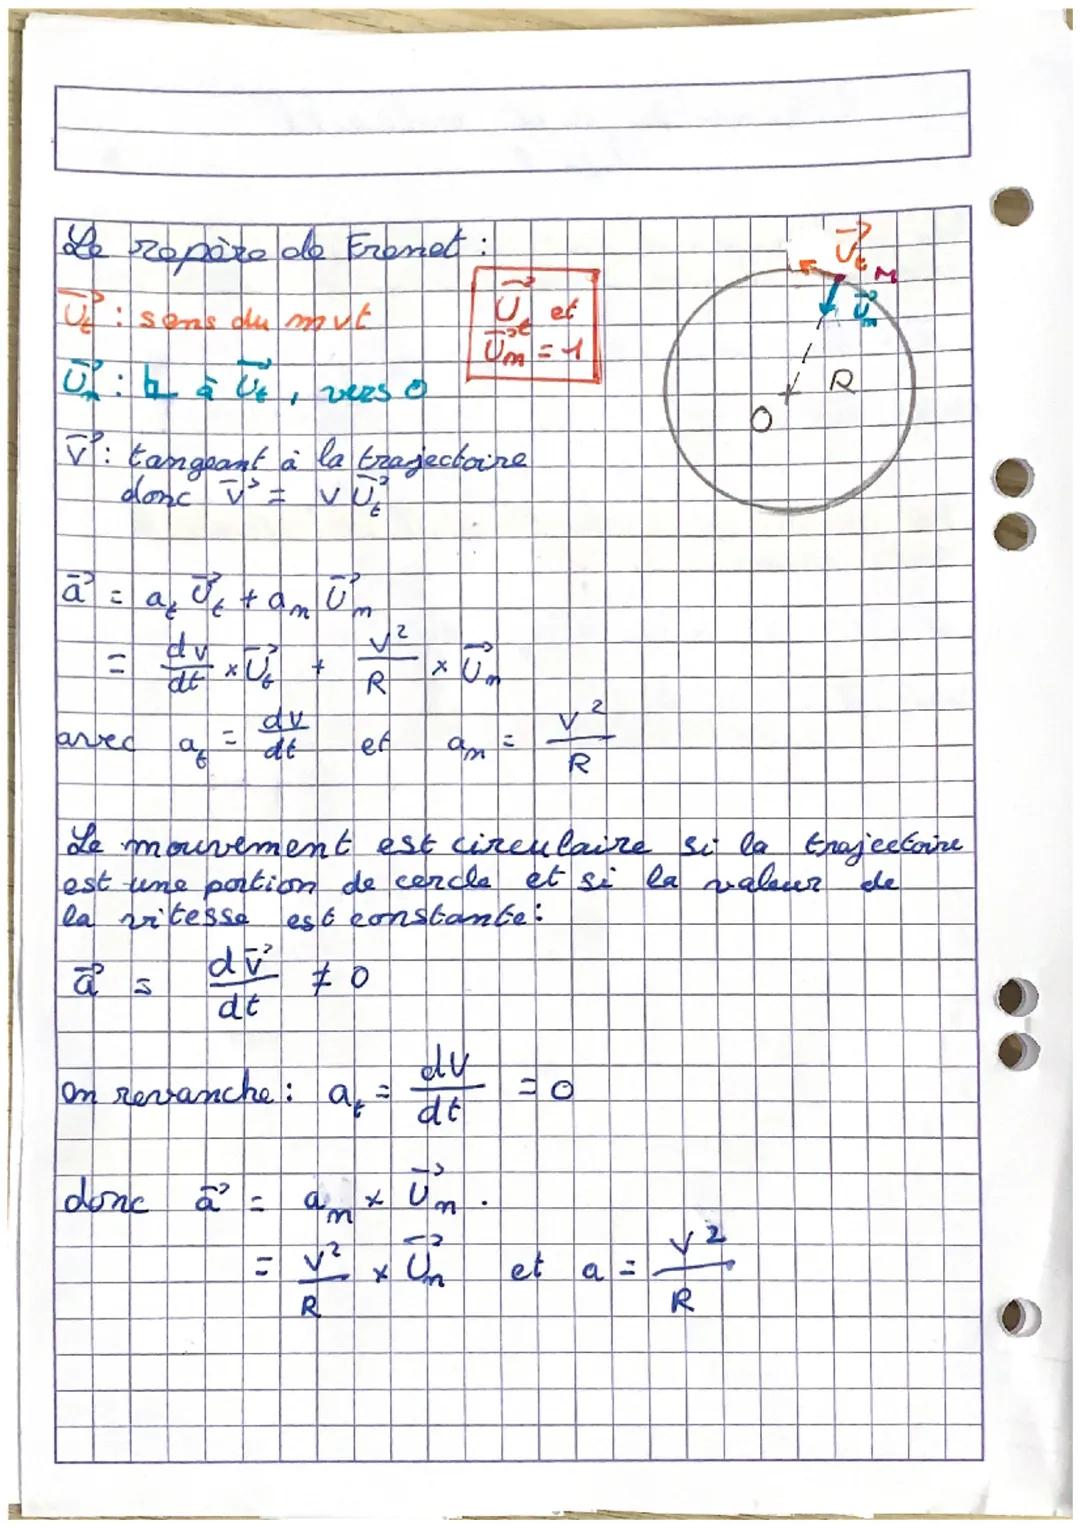 Le repère de Frenet :
U⃗t : sens du mvt
U⃗t et
U⃗n = 1
U⃗n : ⊥ à U⃗t, vers O
v⃗ : tangeant à la trajectoire
donc v⃗ = v U⃗t
U⃗t
M
U⃗n
R
O
a⃗ = at U⃗t + an U⃗n
= dv/dt × U⃗t + v²/R × U⃗n
avec at = dv/dt et an = v²/R
Le mouvement est circulaire si la trajectoire
est une portion de cercle et si la valeur de
la vitesse est constante :
a⃗ = dv⃗/dt ≠ 0
en revanche : at = dv/dt = 0
donc a⃗ = an × U⃗n .
= v²/R × U⃗n et a = v²/R